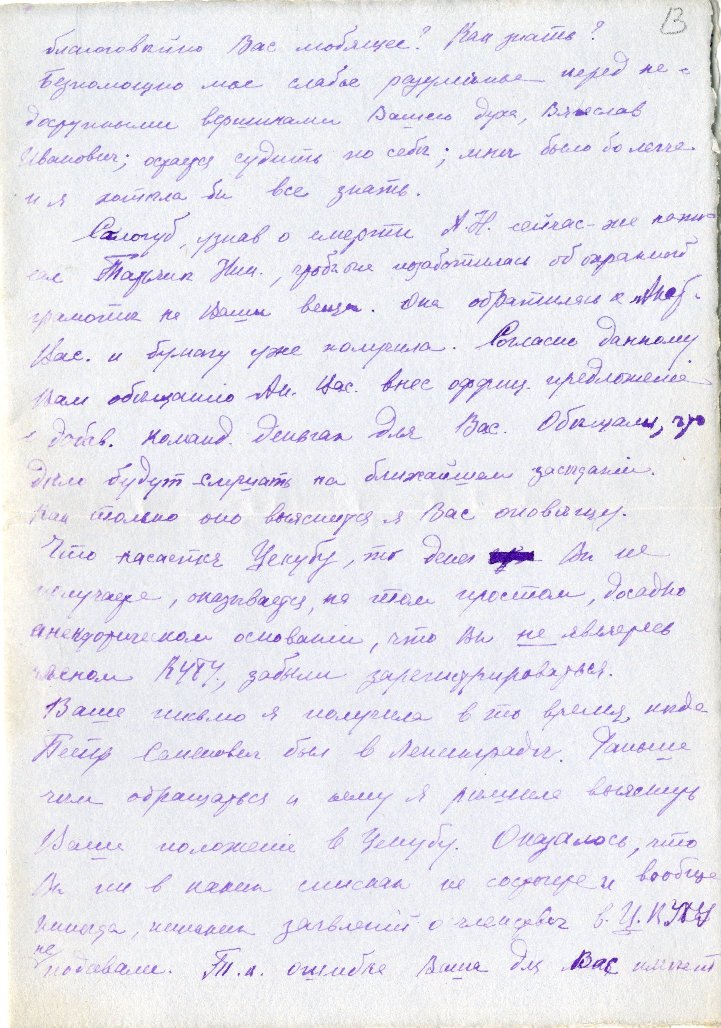 13
благоговѣйно Вас любящее? Как знать?
Безпомощно мое слабое разумѣнье перед не-
доступными вершинами Вашего духа, Вячеслав
Иванович; остается судить по себѣ; мнѣ было бы легче
и я хотѣла бы все знать.
Сологуб, узнав о смерти А.Н. сейчас-же напи-
сал Ник., чтобы позаботилась об охранной
грамоткѣ на Ваши вещи. Она обратилась к
и бумагу уже получила. Согласно данному
Вам обѣщанію Ан. Час. внес оффиц. предложеніе
о добав. команд. деньгах для Вас. Обѣщали, что
дѣло будут слушать на ближайшем засѣданіи.
Как только оно выяснится я Вас оповѣщу.
Что касается Цекубу, то денег Вы не
получаете, оказывается, на том простом, досадно
анекдотическом основаніи, что Вы не являетесь
членом КУБУ, забыли зарегистрироваться.
Ваше письмо я получила в то время, когда
Петр Семенович был в Ленинградѣ. Раньше
чѣм обращаться к нему я рѣшила выяснить
Ваше положеніе в Цекубу. Оказалось, что
Вы ни в каких списках не состоите и вообще
никогда, никаких заявленій о членствѣ в Ц.КУБУ
не подавали. Т.к. ошибка Ваша для Вас имѣет